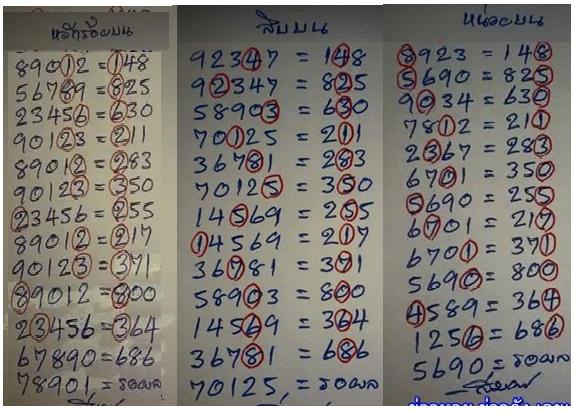 หลักร้อยบน
89012 = 148
56789 = 825
23456 = 630
90123 = 211
89012 = 283
90123 = 350
23456 = 255
89012 = 217
90123 = 371
89012 = 800
23456 = 364
67890 = 686
78901 = รอผล
สิบบน
92347 = 148
92347 = 825
58903 = 630
70125 = 211
36781 = 283
70125 = 350
14569 = 255
14569 = 217
36781 = 371
58903 = 800
14569 = 364
36781 = 686
70125 = รอผล
หน่วยบน
8923 = 148
5690 = 825
9034 = 630
7812 = 211
2367 = 283
6701 = 350
5690 = 255
6701 = 217
6701 = 371
5690 = 800
4589 = 364
1256 = 686
5690 = รอผล